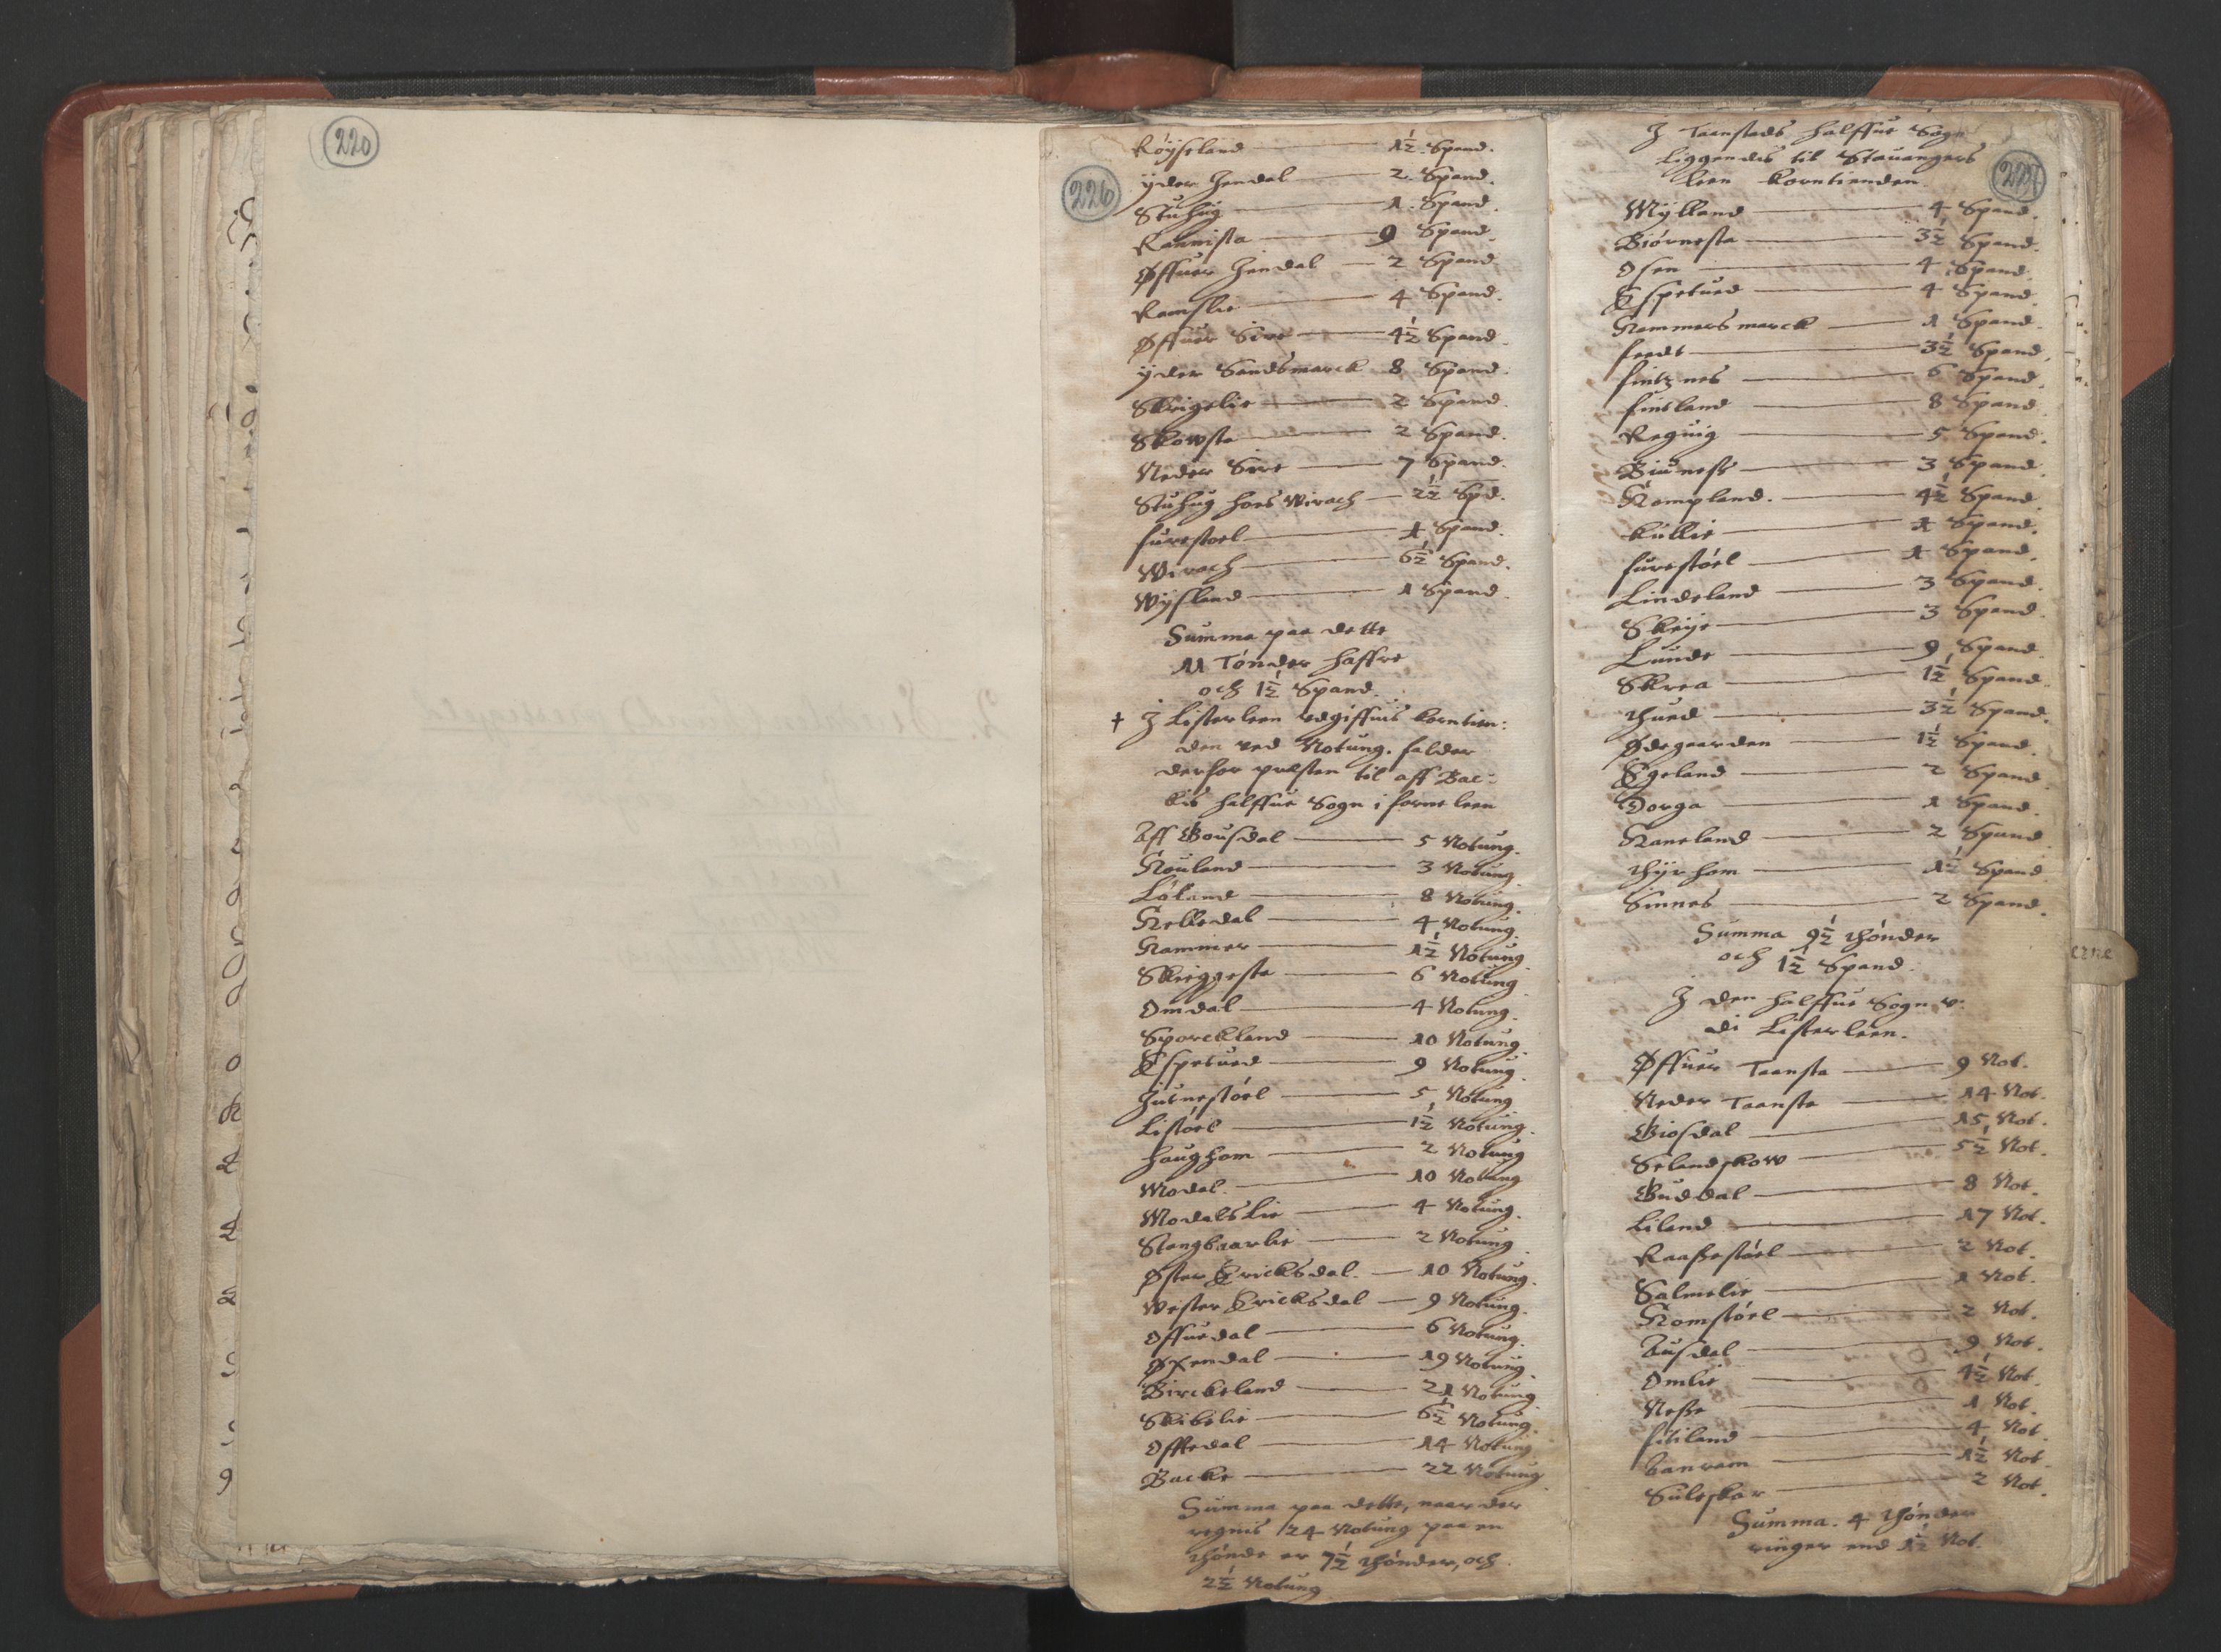 220
226
Röÿseland — 1½ Spand.
ÿder Hendal — 2 Spand.
Stuhug — 1 Spand.
Rannista — 9 Spand.
Øffuer Hendal — 2 Spand.
Ramslie — 4 Spand.
Øffuer Sire — 4½ Spand.
ÿder Sandsmarck 8 Spand.
Skrigelie — 2 Spand.
Skowsta — 2 Spand.
Neder Sire — 7 Spand.
Stuhug hoes Wirach — 2½ Spd.
furestoel — 1 Spand.
Wirach — 6½ Spand.
Wÿsland — 1 Spand.
Summa paa dette
11 Tönder haffre
och 1½ Spand.
† J Listerleen udgiffuis korntien:
den ved Notung. falder
derfor presten til aff Bac:
kis halffue Sogn i forne leen
Aff Gousdal — 5 Notung.
Houland — 3 Notung.
Löland — 8 Notung.
Helledal — 4 Notung.
Hammer — 1½ Notung.
Skieggesta — 6 Notung
Omdal — 4 Notung.
Sporckland — 10 Notung
Espetued — 9 Notung.
Hunestöel — 5 Notung
Listöel — 1½ Notung.
haughom — 2 Notung
Modal. — 10 Notung
Modals Lie — 4 Notung.
Stangbaarlie — 2 Notung
Øster Ericksdal. — 10 Notung.
Wester Ericksdal — 9 Notung.
Offuedal — 6 Notung.
Øxendal — 19 Notung
Birckeland — 21 Notung
Skibelie — 6½ Notung.
Offtedal — 14 Notung
Backe — 22 Notung
Summa paa dette, naar der
regnis 24 Notung paa en
thönde er 7½ thönder, och
2½ Notung
227
J Taanstads halffue Sogn
liggendis til Stauangers
leen korntienden.
Mÿkland — 4 Spand.
Biörnesta — 3½ Spand.
Osen — 4 Spand.
Espetued — 4 Spand.
Hammersmarck — 1 Spand.
feedt — 3½ Spand.
fintznes — 6 Spand.
finsland — 8 Spand
Reguig — 5 Spand.
Biuness — 3 Spand.
Hompland. — 4½ Spand.
Kullie — 1 Spand.
furestöel — 1 Spand.
Lindeland — 3 Spand.
Skeije — 3 Spand.
Lunde — 9 Spand.
Skrea — 1½ Spand.
thued — 3½ Spand.
Ødegaarden — 1½ Spand.
Egeland — 2 Spand.
Dorga — 1 Spand.
Haneland — 2 Spand.
thÿrhom — 1½ Spand.
Sinnes — 2 Spand.
Summa 9½ thönder
och 1½ Spand.
J den halffue Sogn v:
di Listerleen.
Øffuer Taansta — 9 Not.
Neder Taansta — 14 Not.
Giosdal — 15 Not.
Selandskow — 5½ Not.
Guddal — 8 Not.
Liland — 17 Not.
Raasestöel — 2 Not.
Salmelie — 1 Not.
Homstöel — 2 Not.
Ausdal — 9 Not.
Omlie — 4½ Not.
Nesse — 1 Not.
fitiland — 4 Not.
hanrem — 1½ Not.
Suleskar — 2 Not.
Summa. 4 thönder
ringer end 1½ Not.